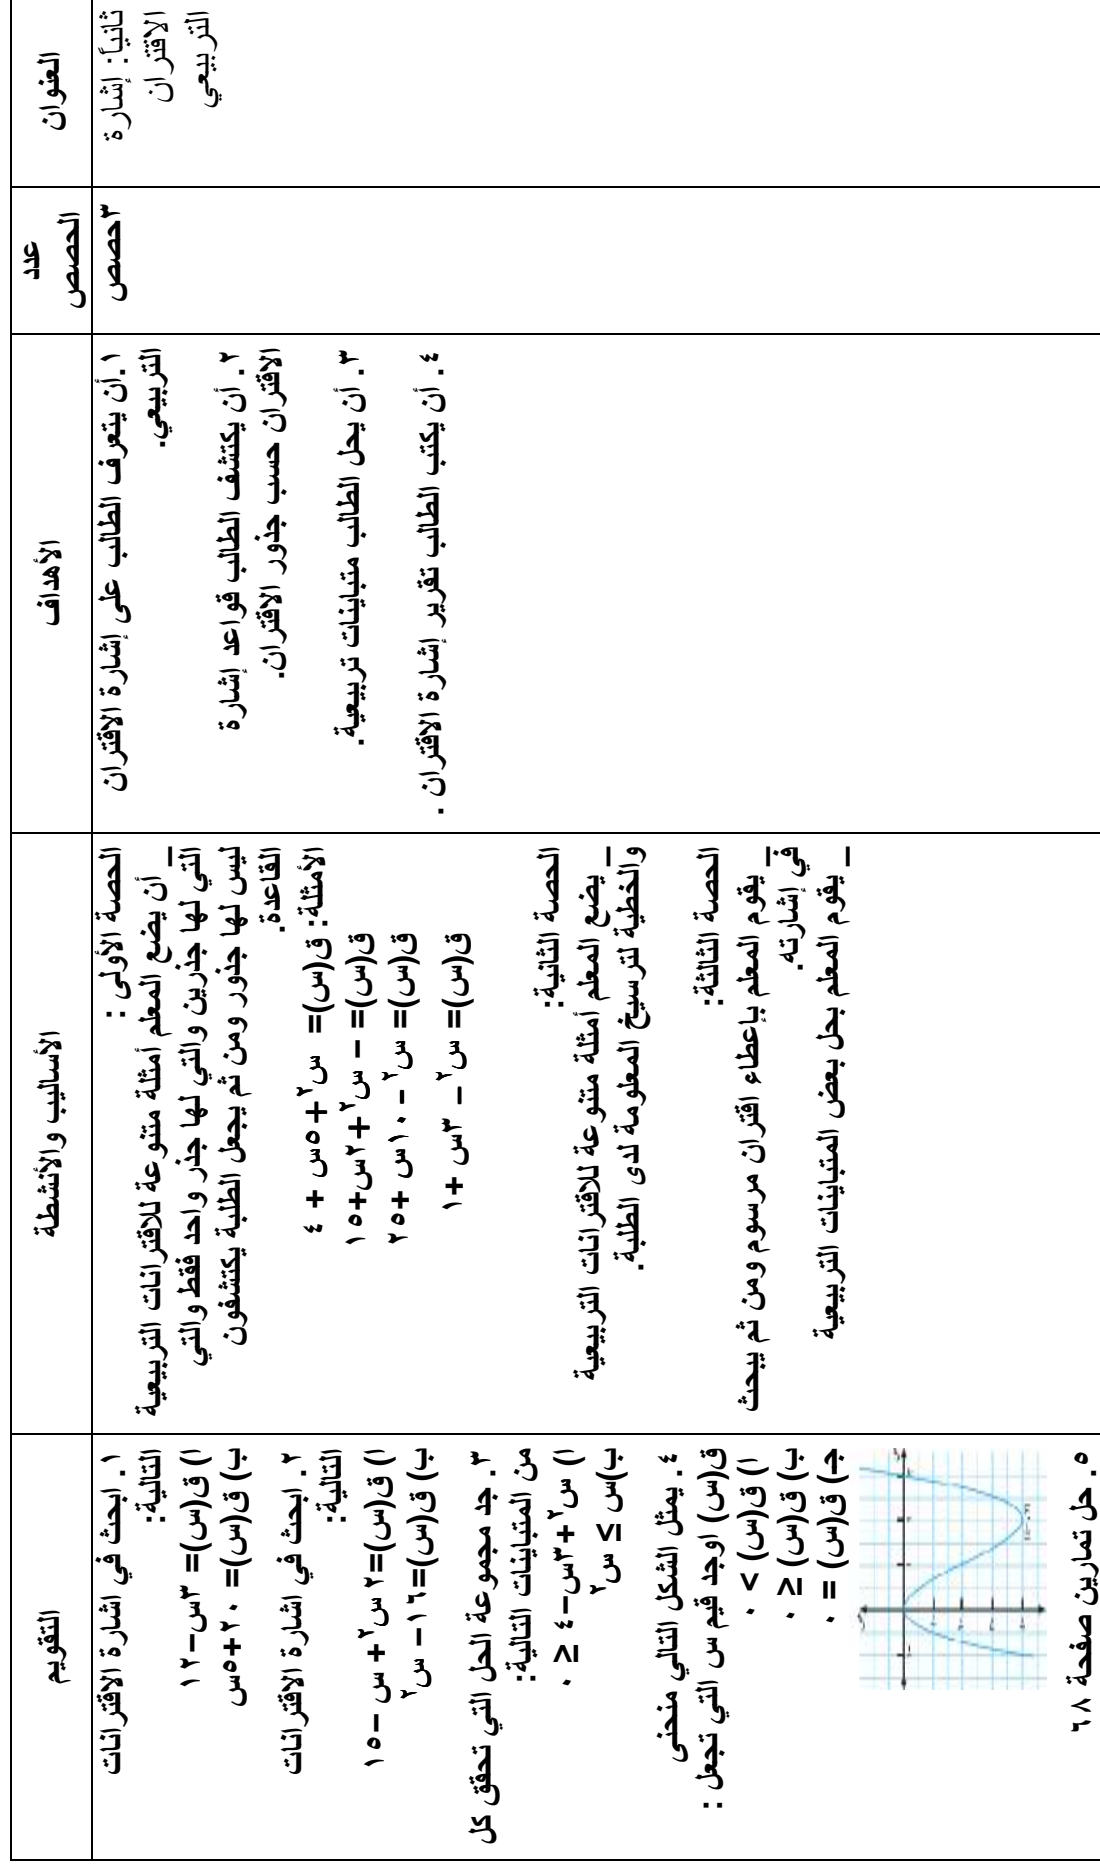 العنوان
عدد
الحصص
الأهداف
الأساليب والأنشطة
التقويم
ثانياً: إشارة
الاقتران
التربيعي
٣حصص
١.أن يتعرف الطالب على إشارة الاقتران
التربيعي.
٢. أن يكتشف الطالب قواعد إشارة
الاقتران حسب جذور الاقتران.
٣. أن يحل الطالب متباينات تربيعية.
٤. أن يكتب الطالب تقرير إشارة الاقتران .
الحصة الأولى :
_ أن يضع المعلم أمثلة متنوعة للاقترانات التربيعية
التي لها جذرين والتي لها جذر واحد فقط والتي
ليس لها جذور ومن ثم يجعل الطلبة يكتشفون
القاعدة.
الأمثلة: ق(س)= س٢+٥س + ٤
ق(س)= – س٢+٢س+١٥
ق(س)= س٢–١٠س +٢٥
ق(س)= س٢– ٣س +١
الحصة الثانية:
_ يضع المعلم أمثلة متنوعة للاقترانات التربيعية
والخطية لترسيخ المعلومة لدى الطلبة.
الحصة الثالثة:
_ يقوم المعلم بإعطاء اقتران مرسوم ومن ثم يبحث
في إشارته.
_ يقوم المعلم بحل بعض المتباينات التربيعية
١. ابحث في اشارة الاقترانات
التالية:
ا) ق(س)= ٣س–١٢
ب) ق(س)= ٢٠+٥س
٢. ابحث في اشارة الاقترانات
التالية:
ا) ق(س)=٢س٢+س –١٥
ب) ق(س)=١٦– س٢
٣. جد مجموعة الحل التي تحقق كل
من المتباينات التالية:
ا) س٢+٣س–٤ ≥ ٠
ب)س ≥ س٢
٤. يمثل الشكل التالي منحنى
ق(س) اوجد قيم س التي تجعل :
ا) ق(س) > ٠
ب) ق(س) ≥ ٠
ج) ق(س) = ٠
٥. حل تمارين صفحة ٦٨